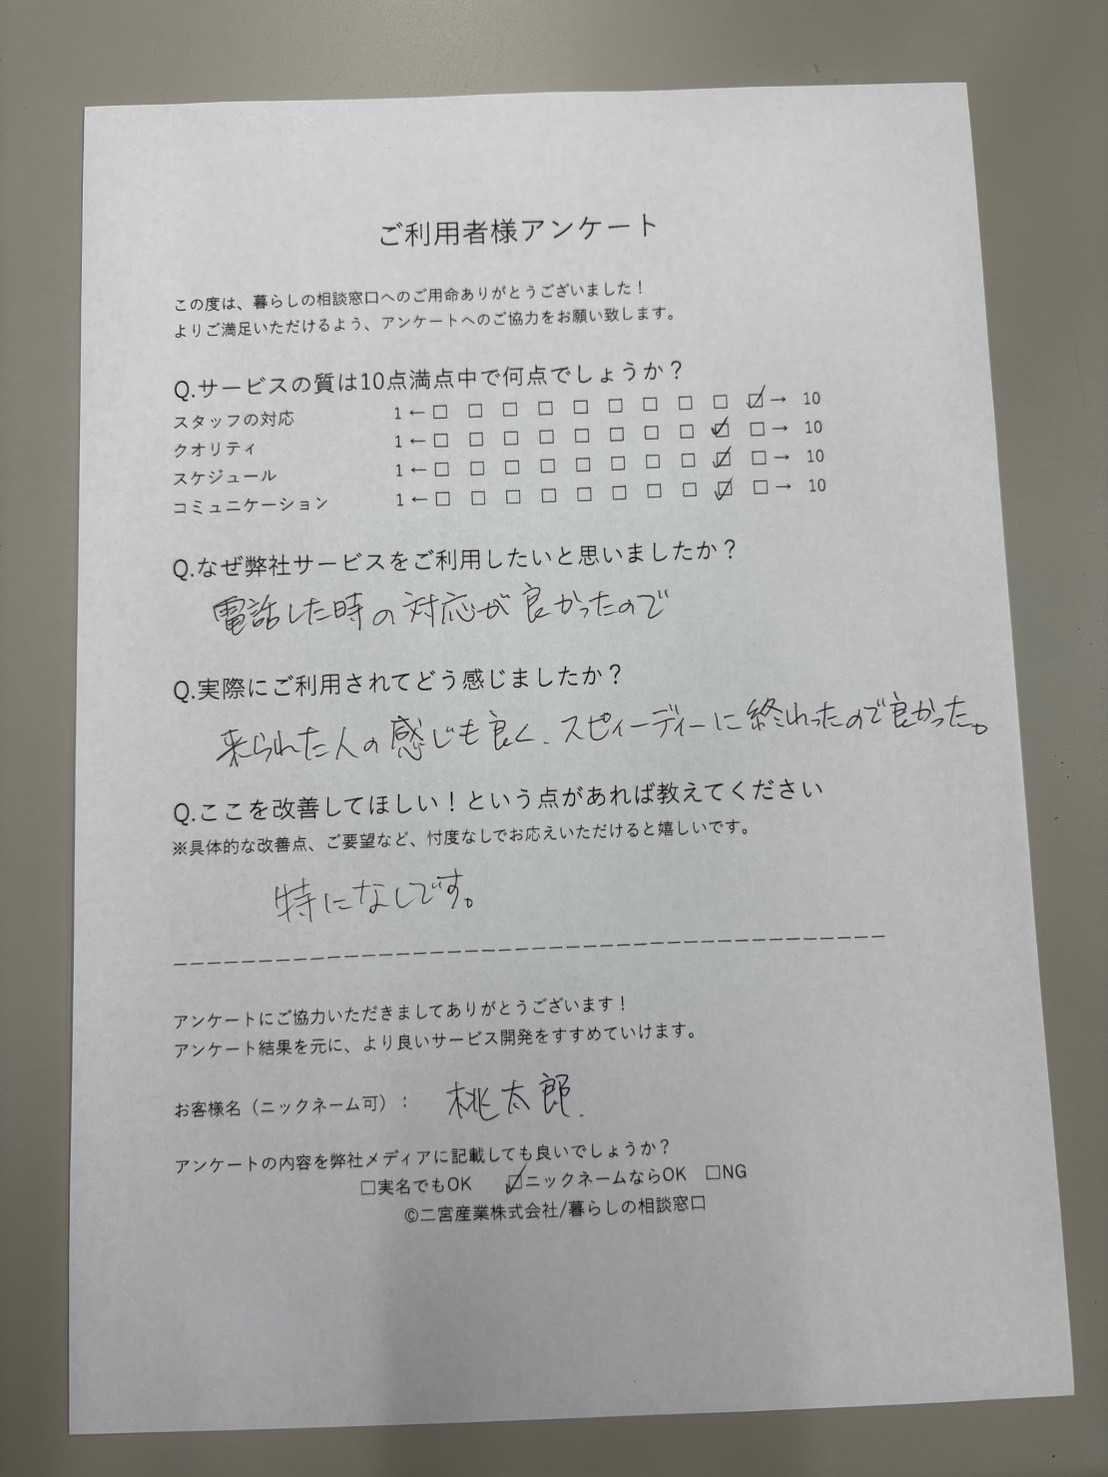 ご利用者様アンケート
この度は、暮らしの相談窓口へのご用命ありがとうございました！
よりご満足いただけるよう、アンケートへのご協力をお願い致します。
Q.サービスの質は10点満点中で何点でしょうか？
スタッフの対応 1 ← □ □ □ □ □ □ □ □ □ ☑ → 10
クオリティ 1 ← □ □ □ □ □ □ □ □ ☑ □ → 10
スケジュール 1 ← □ □ □ □ □ □ □ □ ☑ □ → 10
コミュニケーション 1 ← □ □ □ □ □ □ □ □ ☑ □ → 10
Q.なぜ弊社サービスをご利用したいと思いましたか？
電話した時の対応が良かったので
Q.実際にご利用されてどう感じましたか？
来られた人の感じも良く、スピィーディーに終れったので良かった。
Q.ここを改善してほしい！という点があれば教えてください
※具体的な改善点、ご要望など、忖度なしでお応えいただけると嬉しいです。
特になしです。
アンケートにご協力いただきましてありがとうございます！
アンケート結果を元に、より良いサービス開発をすすめていけます。
お客様名（ニックネーム可）： 桃太郎.
アンケートの内容を弊社メディアに記載しても良いでしょうか？
□実名でもOK ☑ニックネームならOK □NG
©二宮産業株式会社/暮らしの相談窓口